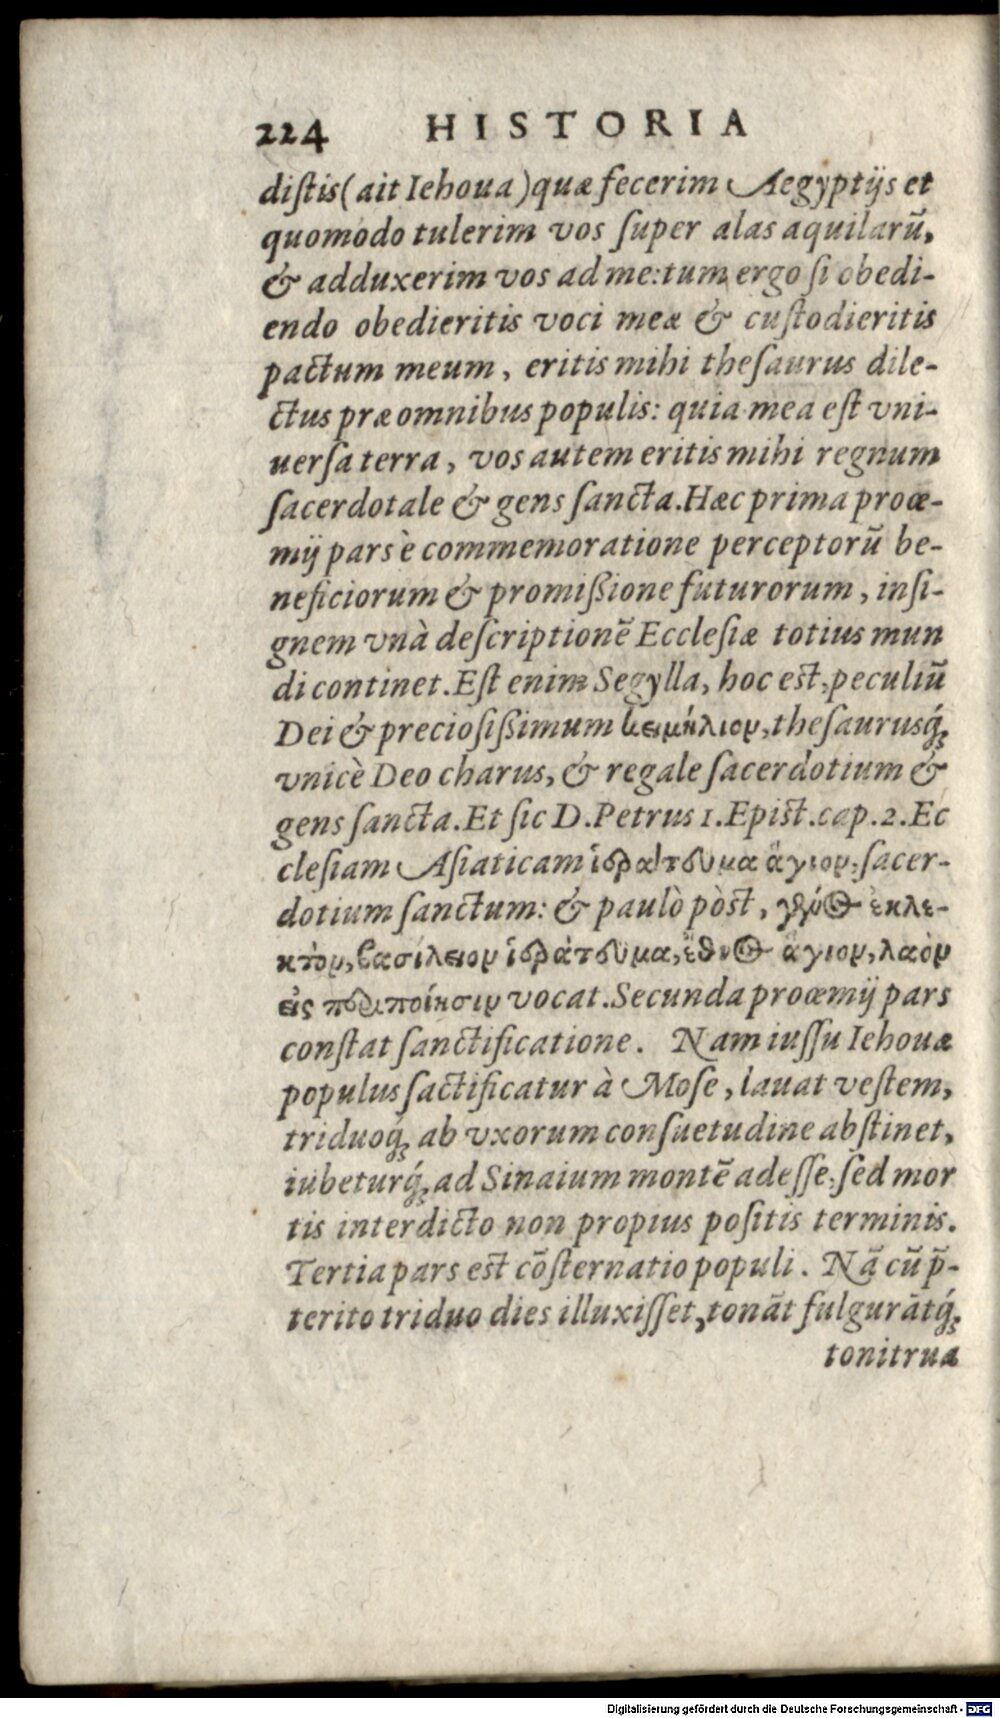 224 HISTORIA
diſtis(ait Iehoua)quæ fecerim Aegyptijs et
quomodo tulerim vos ſuper alas aquilarũ,
& adduxerim vos ad me: tum ergo ſi obedi-
endo obedieritis voci meæ & cuſtodieritis
pactum meum, eritis mihi theſaurus dile-
ctus præ omnibus populis: quia mea eſt vni-
uerſa terra, vos autem eritis mihi regnum
ſacerdotale & gens ſancta. Hæc prima proœ-
mij pars è commemoratione perceptorũ be-
neficiorum & promißione futurorum, inſi-
gnem vnà deſcriptionẽ Eccleſiæ totius mun
di continet. Eſt enim Segylla, hoc eſt, peculiũ
Dei & precioſißimum κειμήλιον, theſaurusq́;
vnicè Deo charus, & regale ſacerdotium &
gens ſancta. Et ſic D. Petrus 1. Epiſt. cap. 2. Ec
cleſiam Aſiaticam ἱεράτευμα ἅγιον, ſacer-
dotium ſanctum: & paulò pòſt, γένος ἐκλε-
κτὸν, βασίλειον ἱεράτευμα, ἔθνος ἅγιον, λαὸν
εἰς περιποίησιν vocat. Secunda proœmij pars
conſtat ſanctificatione. Nam iuſſu Iehouæ
populus ſactificatur à Moſe, lauat veſtem,
triduoq́; ab vxorum conſuetudine abſtinet,
iubeturq́; ad Sinaium montẽ adeſſe: ſed mor
tis interdicto non propius poſitis terminis.
Tertia pars eſt cõſternatio populi. Nã cũ p̃-
terito triduo dies illuxiſſet, tonãt fulgurãtq́;
tonitrua
Digitalisierung gefördert durch die Deutsche Forschungsgemeinschaft - DFG